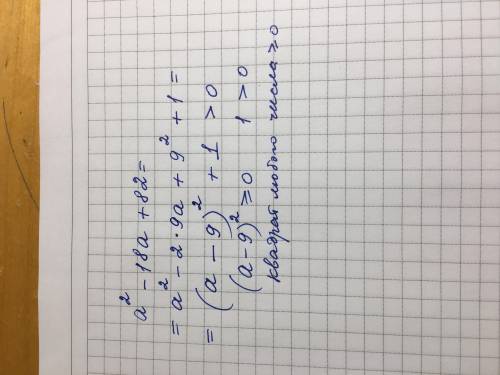 a² - 18a + 82 =
= a² - 2·9a + 9² + 1 =
= (a - 9)² + 1 > 0
(a-9)² ≥ 0 1 > 0
квадрат любого числа ≥ 0